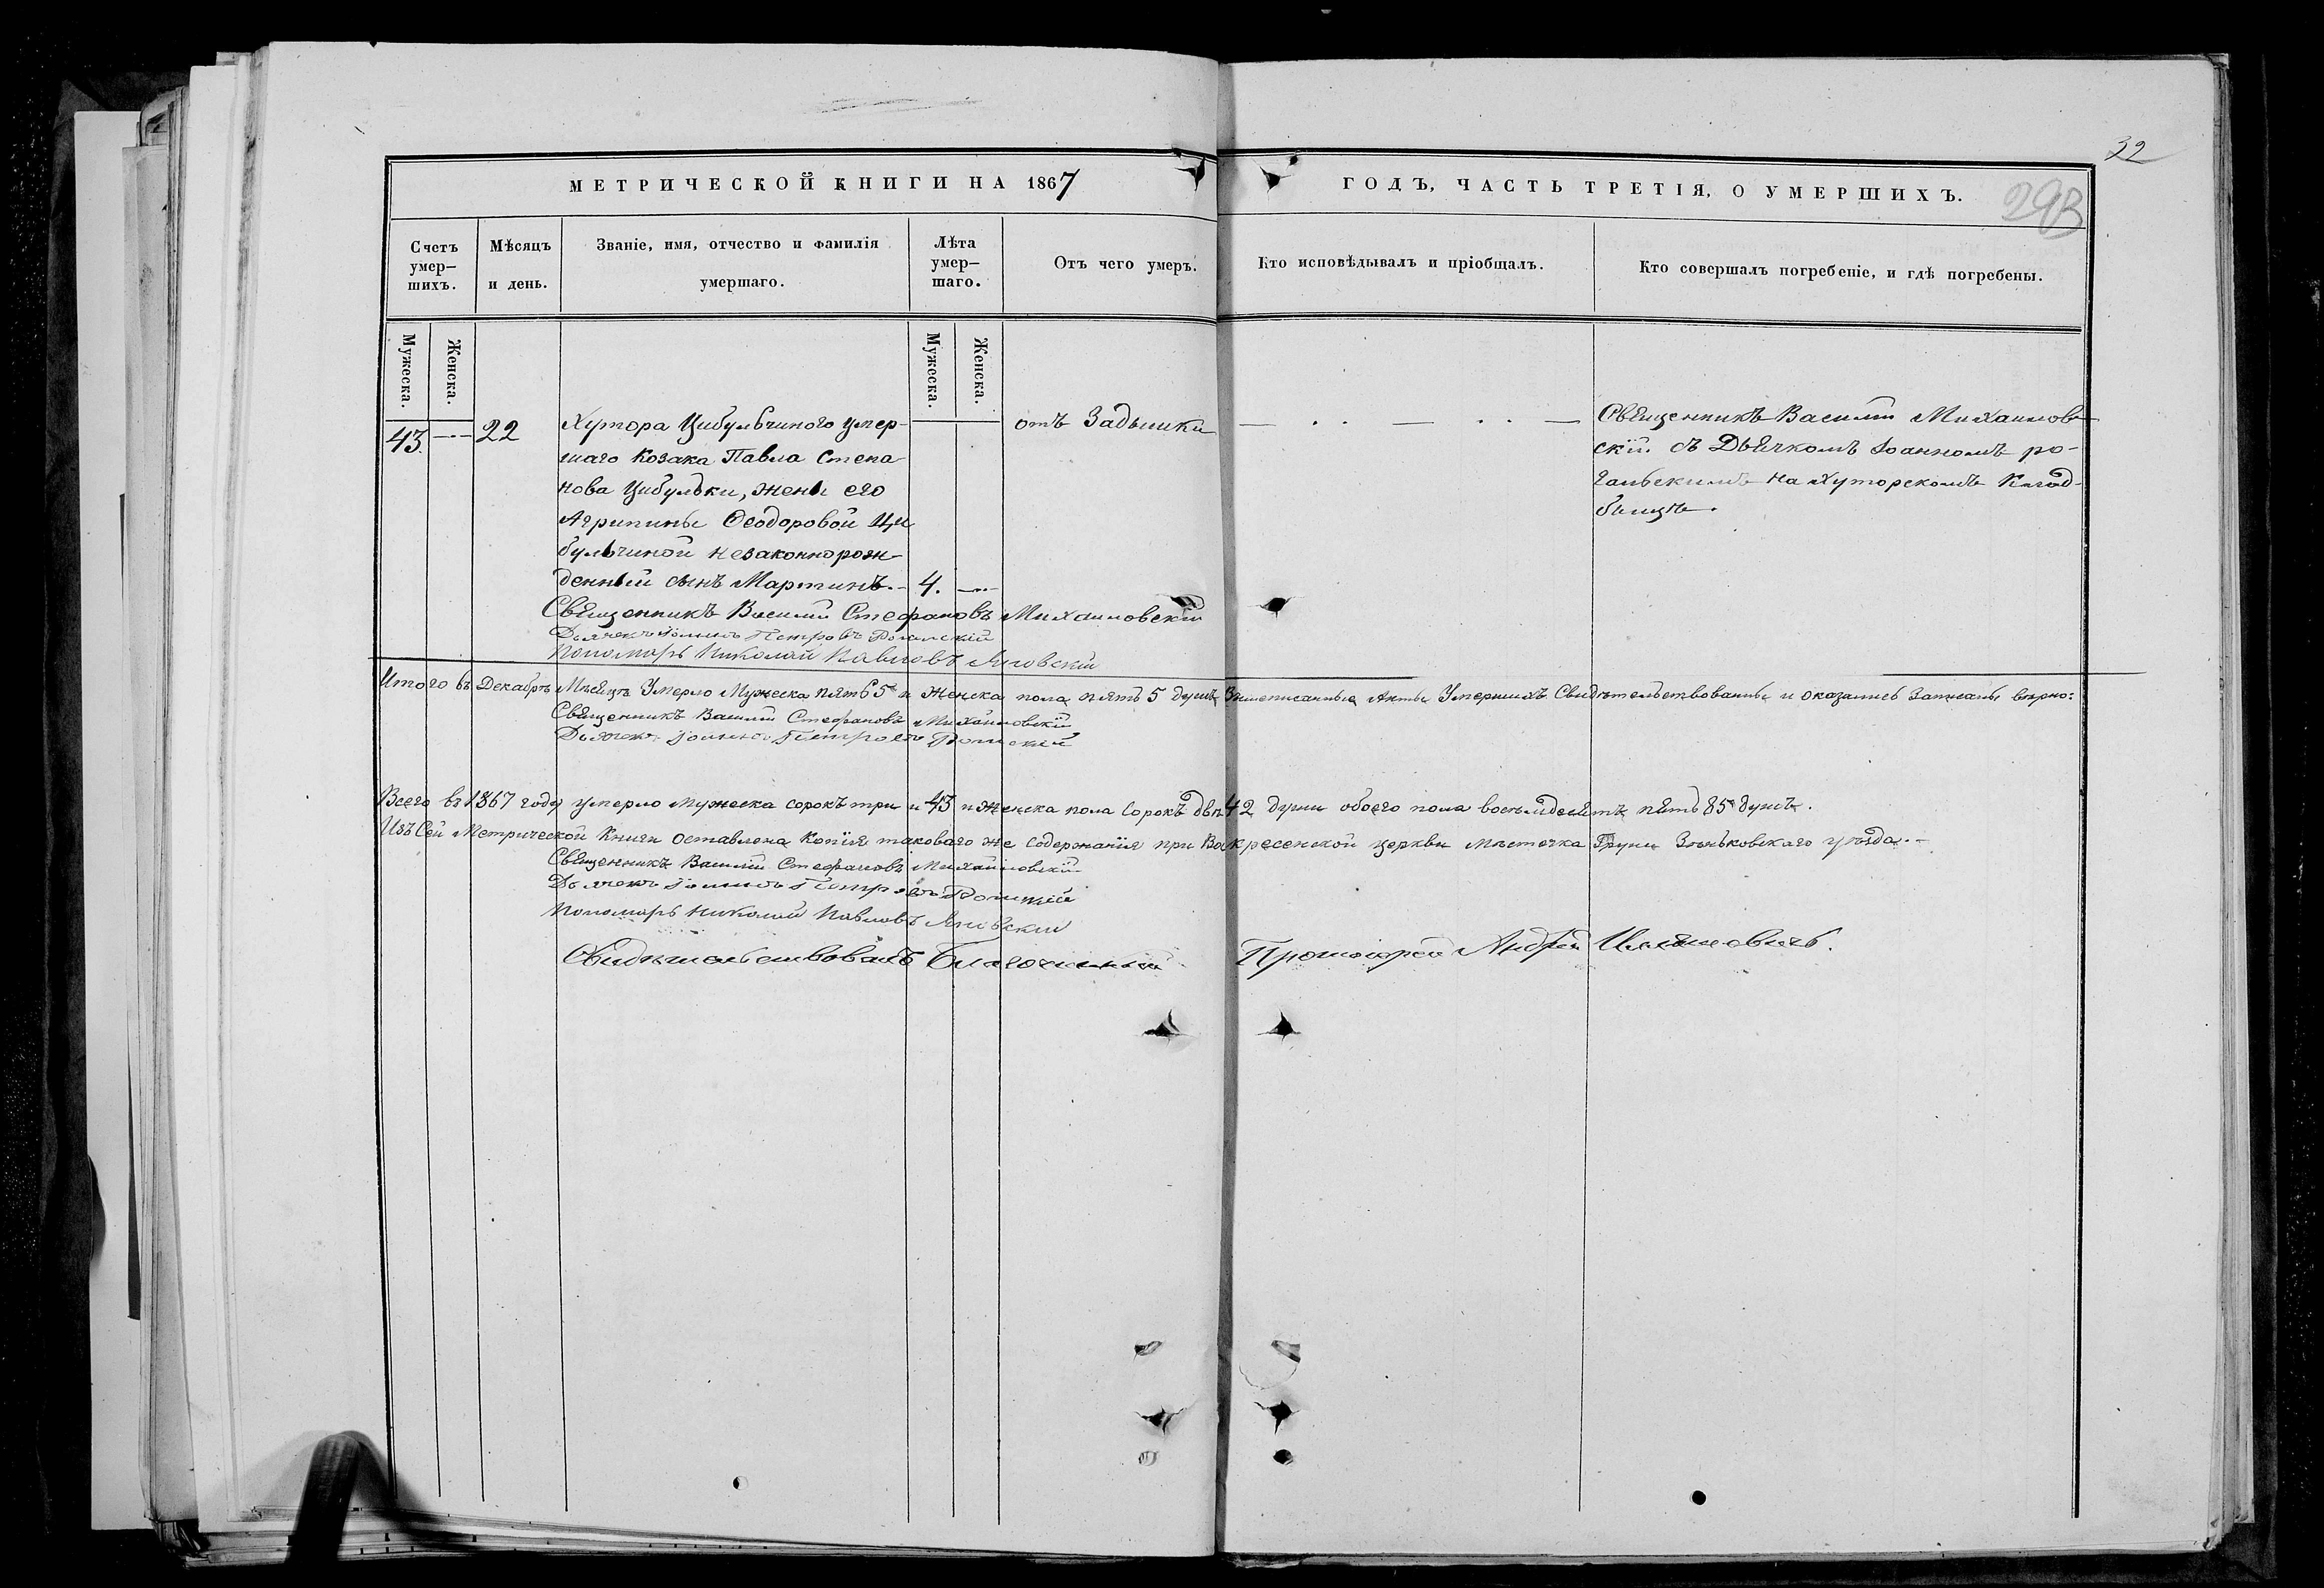 32
29В
МЕТРИЧЕСКОЙ КНИГИ НА 1867
ГОДЪ, ЧАСТЬ ТРЕТІЯ, О УМЕРШИХЪ.
Счетъ умер–шихъ.
Мѣсяцъ и день.
Званіе, имя, отчество и фамилія умершаго.
Лѣта умер–шаго.
Отъ чего умеръ.
Кто исповѣдывалъ и пріобщалъ.
Кто совершалъ погребеніе, и гдѣ погребены.
Мужеска.
Женска.
Мужеска.
Женска.
43. — 22
Хутора Цибульчиного умер-
шаго Козака Павла Степа
нова Цибульки, жены его
Агрипины Ѳеодоровой Ци
бульчиной незаконнорож-
денный сынъ Мартинъ. - 4. —
отъ Задышки
Священникъ Василій Михаиловс
кій съ Дьячкомъ Іоанномъ Ро-
гальскимъ на Хуторскомъ Клад-
бищѣ.
Священникъ Василій Стефановъ Михаиловскій
Дьячекъ Іоаннъ Петровъ Рогальскій
Пономарь Николай Павловъ Яновскій
Итого въ Декабрѣ Мѣсяцѣ Умерло Мужеска пять 5 и Женска пола пять 5 душъ. Вышеписанные Акты Умершихъ Свидѣтельствованы и оказались Записаны вѣрно:
Священникъ Василій Стефановъ Михаиловскій
Дьячекъ Іоаннъ Петровъ
Всего въ 1867 году умерло Мужеска сорокъ три и 43 и Женска пола Сорокъ двѣ 42 души обоего пола восемьдесятъ пять 85 душъ.
Изъ Сей Метрической Книги оставлена Копія таковаго же содержанія при Воскресенской церкви мѣстечка Груни Зѣньковскаго уѣзда. -
Священникъ Василій Стефановъ Михаиловскій
Дьячекъ Іоаннъ Петровъ
Пономарь Николай Павловъ Яновскій
Свидѣтельствовалъ Благочинный Протоіерей Андрей